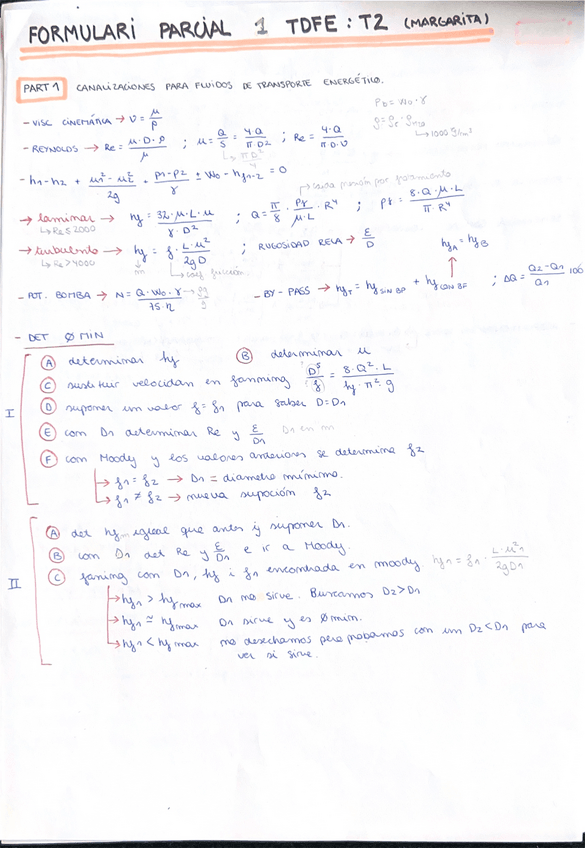 FORMULARI PARCIAL 1 TDFE: T2 (MARGARITA)
PART 1 CANALIZACIONES PARA FLUIDOS DE TRANSPORTE ENERGÉTICO.
Pb = W0 · γ
- VISC CINEMÁTICA → υ = μ/ρ
→ 1000 g/m³
- REYNOLDS → Re = u · D · ρ / μ ; u = Q/S = 4·Q / π·D² ; Re = 4·Q / π·D·υ
↳ πD²/4
- h1-h2 + u1²-u2² / 2g + p1-p2 / γ ± W0 - hf1-2 = 0
→ laminar → hf = 32·μ·L·u / γ·D² ; Q = π/8 · Pf / μ·L · R⁴ ; Pf = 8·Q·μ·L / π·R⁴
↳ Re ≤ 2000
→ turbulento → hf = f · L·u² / 2gD ; RUGOSIDAD RELA → ε/D
↳ Re > 4000
↳ coef fricción
hfA = hfB
- POT. BOMBA → N = Q·W0·γ / 75·η
- BY-PASS → hfT = hf SIN BP + hf CON BP ; ΔQ = Q2-Q1 / Q1 100
- DET Ø MIN
I
A determinar hf B determinar u
C sustituir velocidan en fanming D⁵/f = 8·Q²·L / hf·π²·g
D suponer un valor f = f1 para saber D=D1
E con D1 determinar Re y ε/D1 D1 en m
F con Moody y los valores anteriores se determina f2
→ f1 = f2 → D1 = diametro mínimo.
→ f1 ≠ f2 → nueva supoción f2
II
A det hfm igual que antes y suponer D1.
B con D1 det Re y ε/D1 e ir a Moody.
C faning con D1, hf i f1 encontrada en moody. hf1 = f1 · L·u²1 / 2gD1
→ hf1 > hf max D1 no sirve. Buscamos D2>D1
→ hf1 ≈ hf max D1 sirve y es Ø min.
→ hf1 < hf max no desechamos pero probamos con un D2<D1 para
ver si sirve.